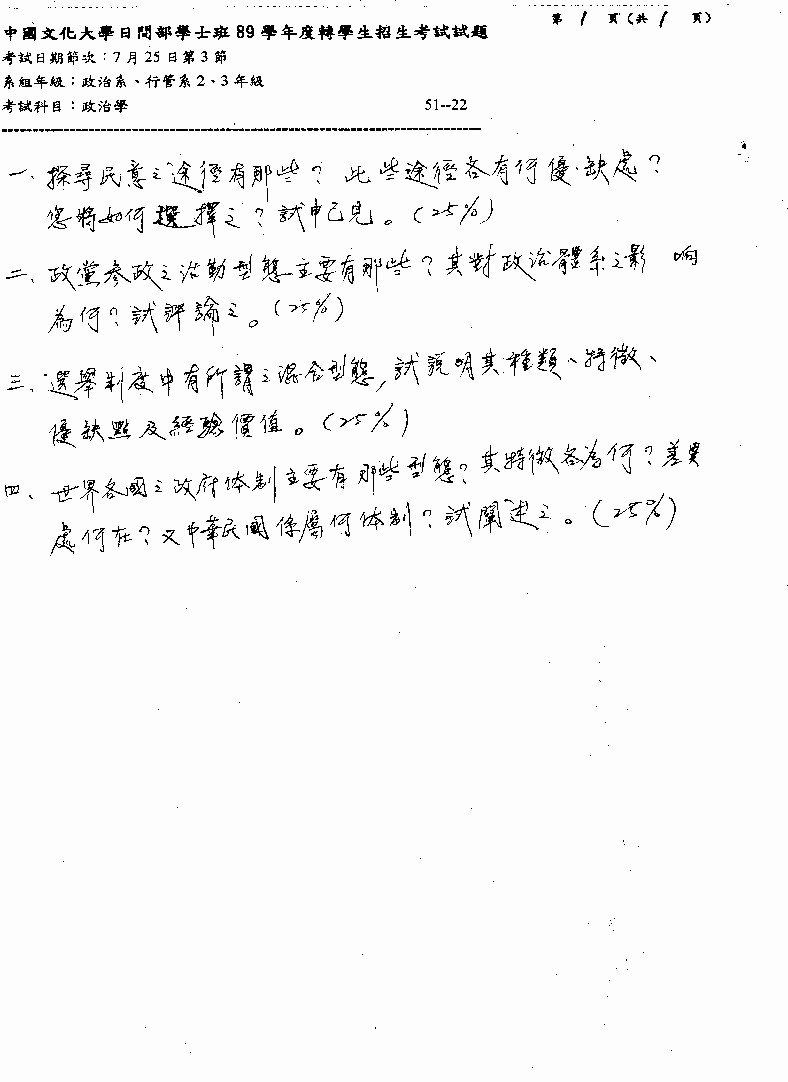 第 1 頁(共 1 頁)
中國文化大學日間部學士班 89 學年度轉學生招生考試試題
考試日期節次:7 月 25 日第 3 節
系組年級:政治系、行管系 2、3 年級
考試科目:政治學 51--22
一、探尋民意之途徑有那些?此些途徑各有何優、缺處?
您將如何選擇之?試申己見。(25%)
二、政黨參政之活動型態主要有那些?其對政治體系之影響
為何?試評論之。(25%)
三、選舉制度中有所謂之混合型態,試說明其種類、特徵、
優缺點及經驗價值。(25%)
四、世界各國之政府体制主要有那些型態?其特徵各為何?差異
處何在?又中華民國係屬何体制?試闡述之。(25%)